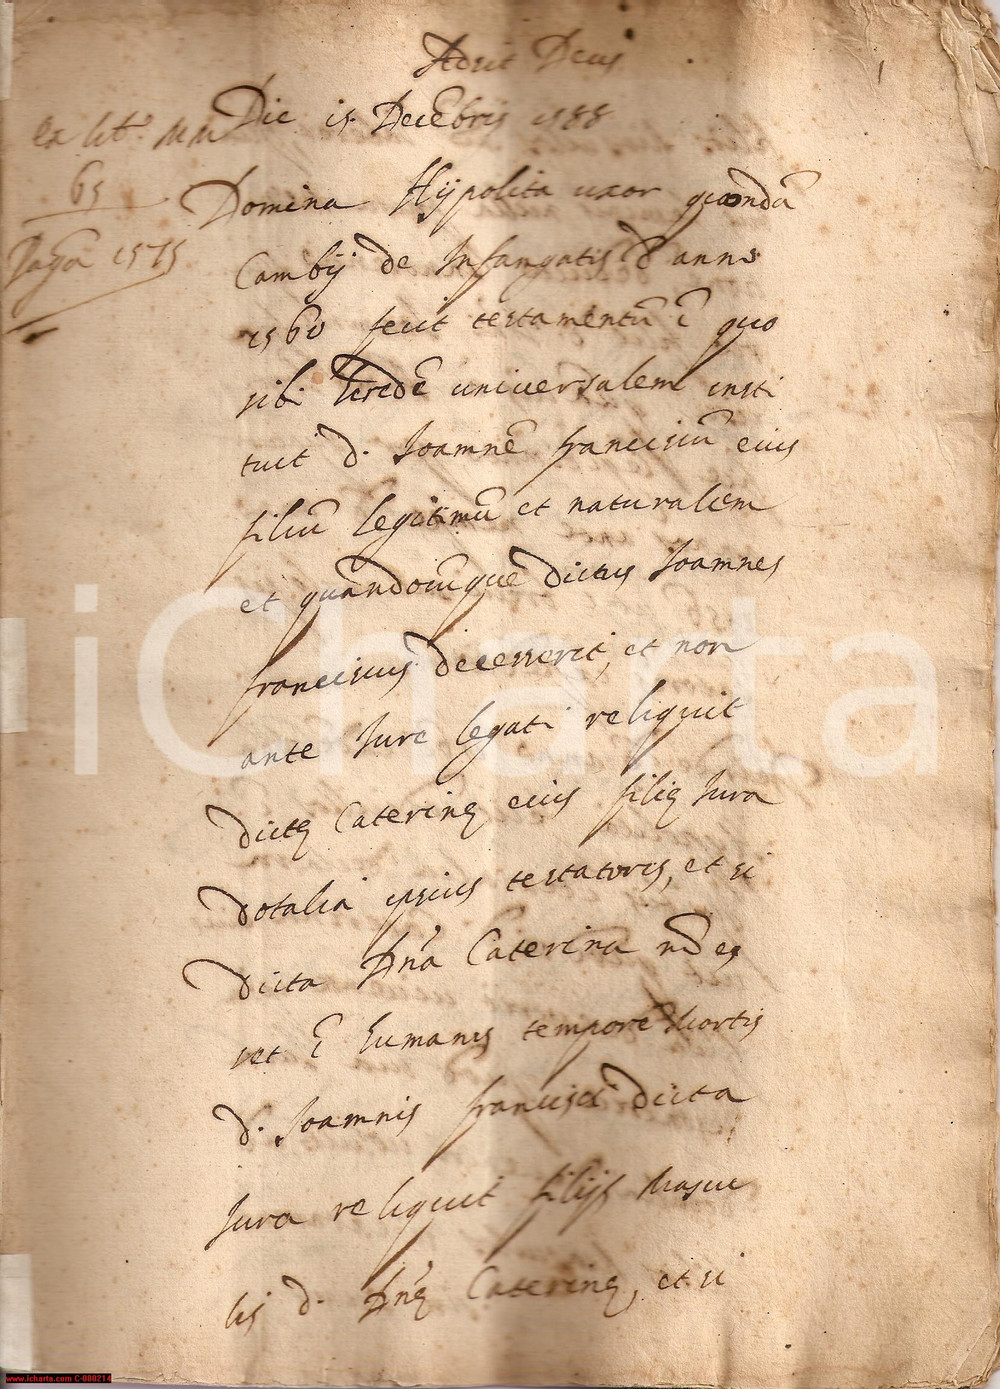 Adsit Deus
Die 15 Decēbris 1588
ex lib.
65
1575
Domina Hypolita uxor quondā
Cambij de Infangatis d anno
1560 fecit testamentū ī quo
sibi heredē universalem insti
tuit d. Joannē franciscū eius
filiū legitimū et naturalem
et quandocūque dictus Joannes
franciscus decesserit, et non
ante Jure legati reliquit
dictę Caterinę eius filię Jura
dotalia ipsius testatoris, et si
dicta Dna Caterina nō es
set ī humanis tempore Mortis
d. Joannis francisci dicta
Jura reliquit filijs Mascu
lis d. Dnę Caterinę, et si
iCharta
www.icharta.com C-000214